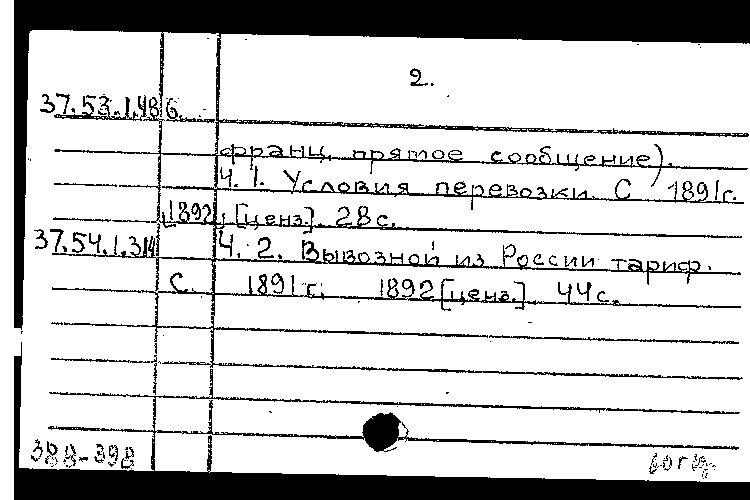 2.
37.53.1.48б.
франц. прямое сообщение).
Ч. 1. Условия перевозки. С 1891г.
1892, [ценз.]. 28с.
37.54.1.314 Ч. 2. Вывозной из России тариф.
С. 1891г. 1892 [ценз.]. 44с.
388-398